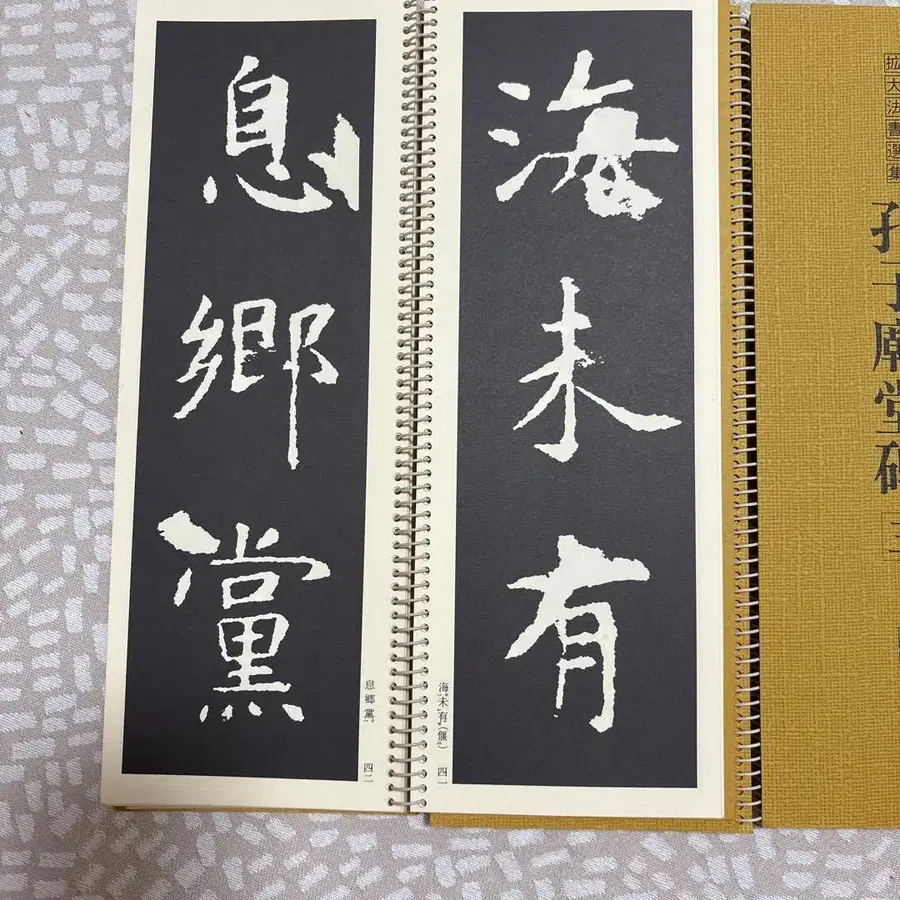 拡大法書選集
孔子廟堂碑
海未有
海未有(偃) 四一
息郷黨
息郷黨 四二